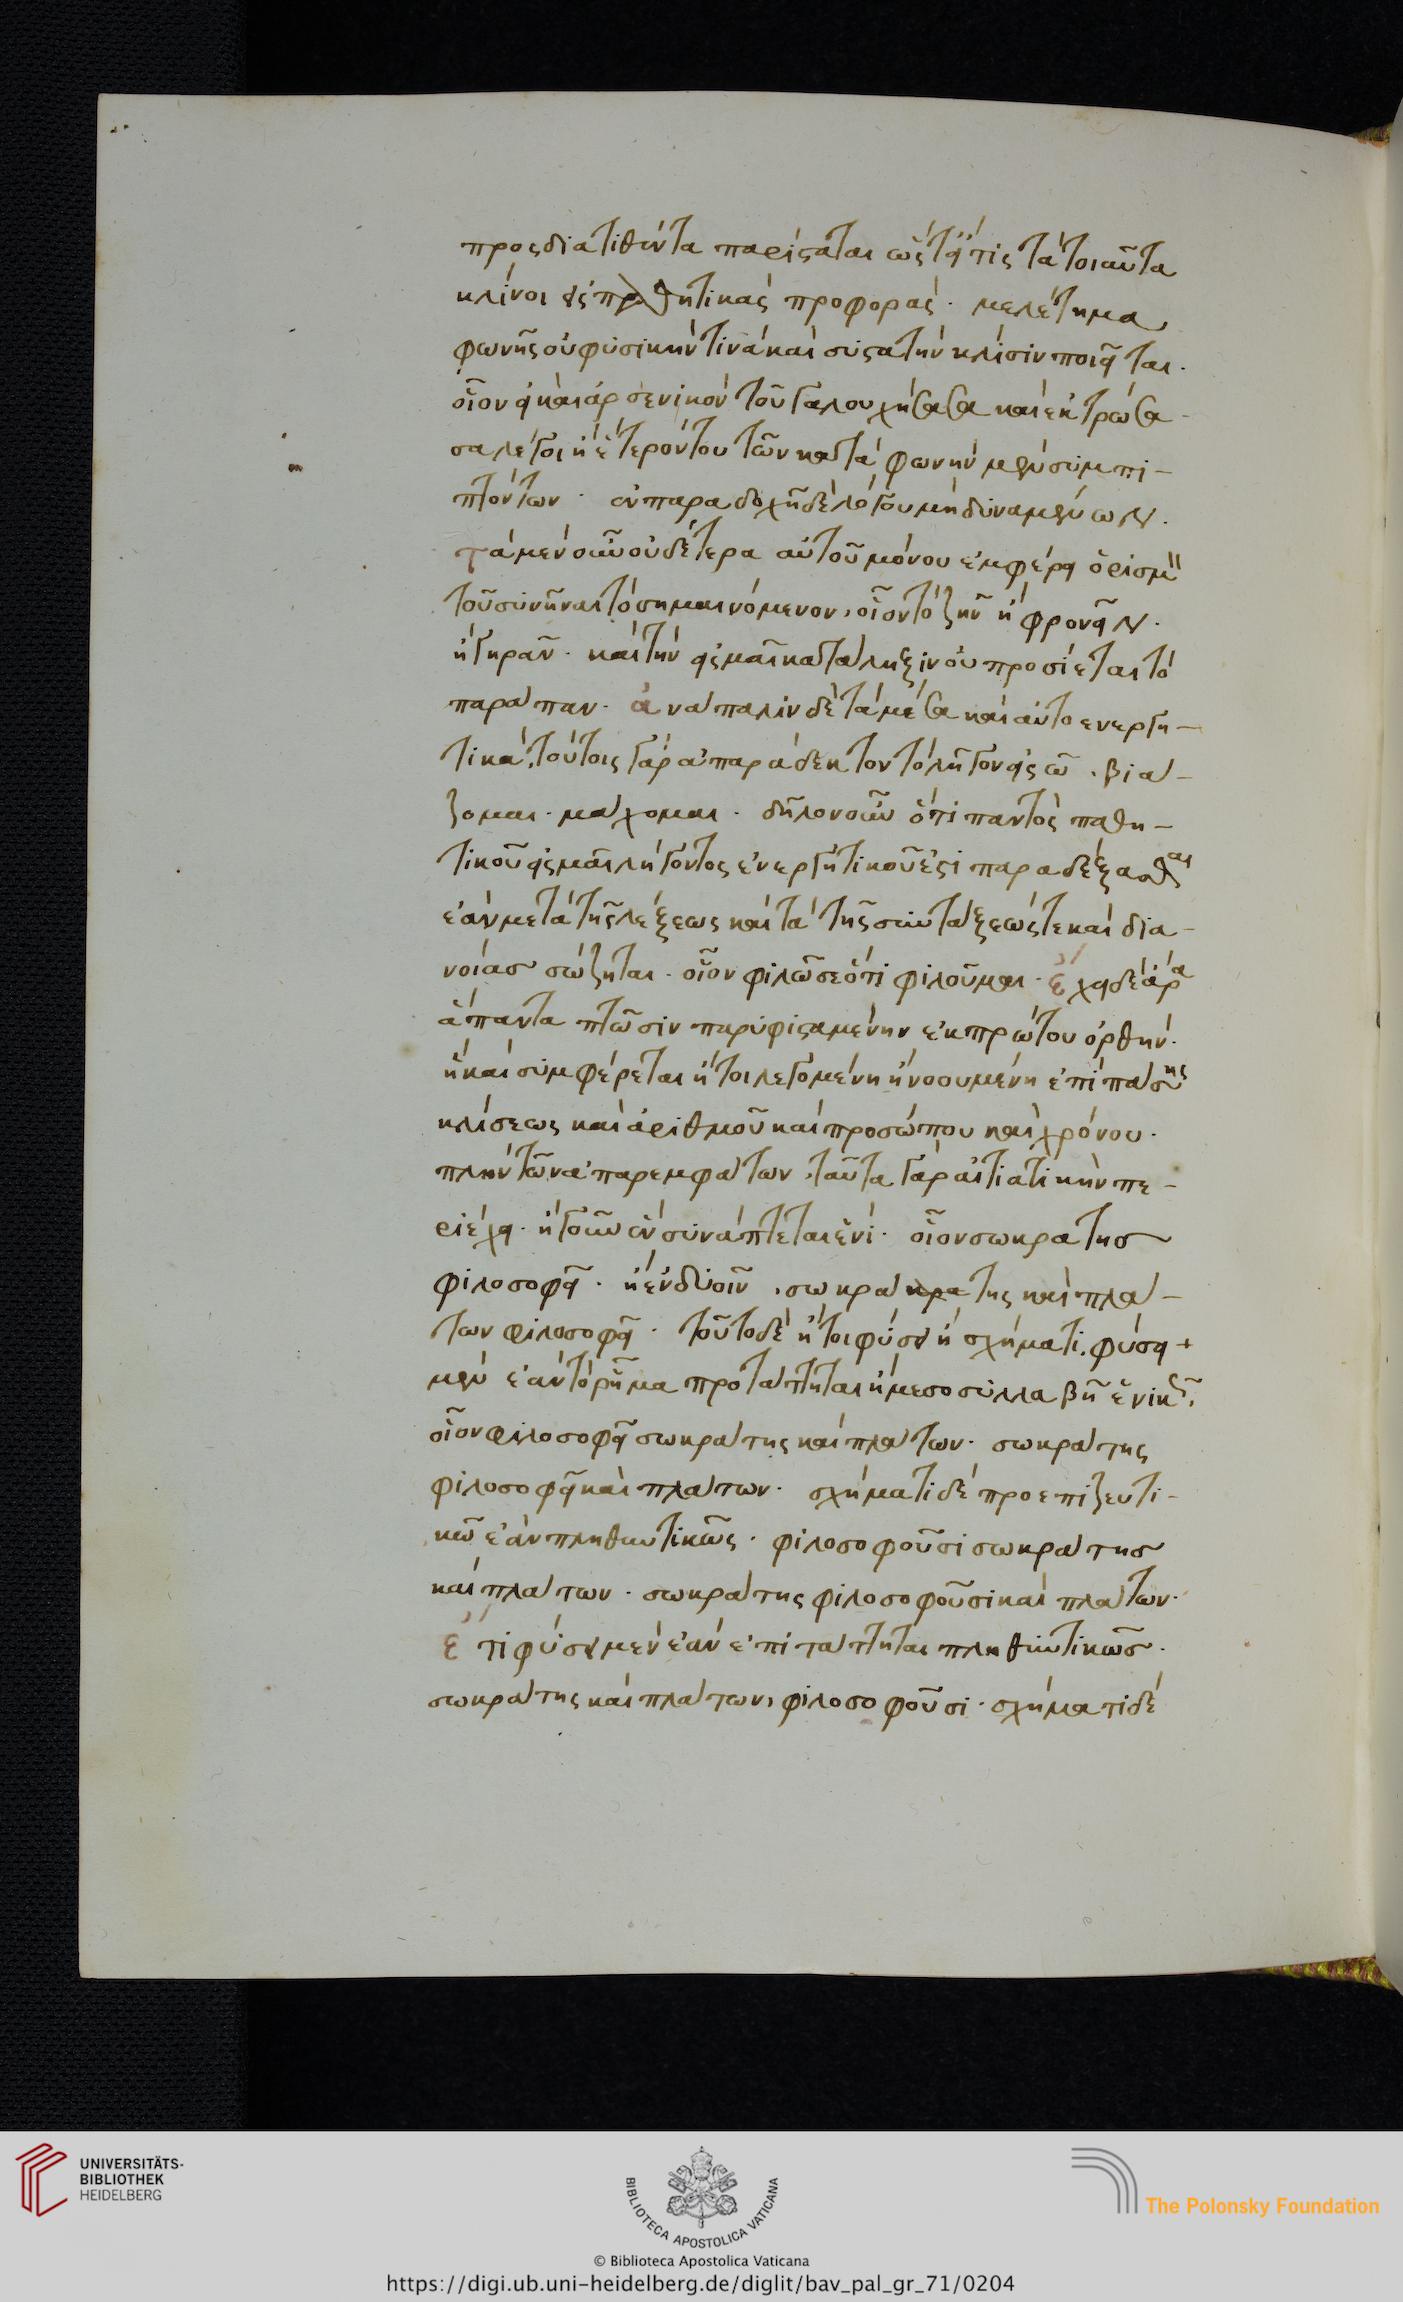 προςδιατιθέντα παρίσταται ὥστ' εἴ τις τὰ τοιαῦτα
κλίνοι εἰς παθητικὰς προφοράς· μελέτημα
φωνῆς οὐ φυσικὴν τινὰ καὶ συστατὴν κλίσιν ποιεῖται·
οἷον εἰ καὶ ἀρσενικὸν τοῦ γαλουχήσασα καὶ ἐκτρώσα
σα λέγοι ἢ ἕτερόν του τῶν κατὰ φωνὴν μὲν συμπι-
πτόντων· ἐν παραδοχῇ δὲ λόγου μὴ δυναμένων.
τὰ μὲν οὖν οὐδέτερα αὐτοῦ μόνου ἐμφέρει ὁρισμὸν
τοῦ συνῆναι τὸ σημαινόμενον, οἷον τὸ ζῆν ἢ φρονεῖν.
ἢ γηρᾶν· καὶ τὴν εἰς μαι κατάληξιν οὐ προσίεται τὸ
παράπαν· ἀνάπαλιν δὲ τὰ μέσα καὶ αὐτοενεργη-
τικά, τούτοις γὰρ ἀπαράδεκτον τὸ λῆγον εἰς ω. βιά-
ζομαι· μάχομαι· δῆλον οὖν ὅτι παντὸς παθη-
τικοῦ εἰς μαι λήγοντος ἐνεργητικοῦ ἐστι παραδέξασθαι
ἐὰν μετὰ τῆς λέξεως καὶ τὰ τῆς συντάξεώς τε καὶ δια-
νοίας σώζηται· οἷον φιλῶ σε ὅτι φιλοῦμαι· ἔχει δὲ ἄρα
ἅπαντα πτῶσιν παρυφισταμένην ἐκ πρώτου ὀρθήν·
ἣ καὶ συμφέρεται ἤτοι λεγομένη ἢ νοουμένη ἐπὶ πάσης
κλίσεως καὶ ἀριθμοῦ καὶ προσώπου καὶ χρόνου·
πλὴν τῶν ἀπαρεμφάτων, ταῦτα γὰρ αἰτιατικὴν πε-
ριέχει· ἤγουν ἓν συνάπτεται ἑνί· οἷον σωκράτης
φιλοσοφεῖ· ἢ ἓν δυσίν, σωκράκρατης καὶ πλά-
των φιλοσοφεῖ· τοῦτο δὲ ἤτοι φύσει ἢ σχήματι. φύσει
μὲν ἐὰν τὸ ῥῆμα προτάττηται ἢ μεσοσυλλαβῇ ἑνικῶς.
οἷον φιλοσοφεῖ σωκράτης καὶ πλάτων· σωκράτης
φιλοσοφεῖ καὶ πλάτων· σχήματι δὲ προεπιζευτι-
κῶ ἐὰν πληθυντικῶς· φιλοσοφοῦσι σωκράτης
καὶ πλάτων· σωκράτης φιλοσοφοῦσι καὶ πλάτων·
ἔτι φύσει μὲν ἐὰν ἐπιτάττηται πληθυντικῶς·
σωκράτης καὶ πλάτων, φιλοσοφοῦσι· σχήματι δὲ
UNIVERSITÄTS-
BIBLIOTHEK
HEIDELBERG
BIBLIOTECA APOSTOLICA VATICANA
The Polonsky Foundation
© Biblioteca Apostolica Vaticana
https://digi.ub.uni-heidelberg.de/diglit/bav_pal_gr_71/0204